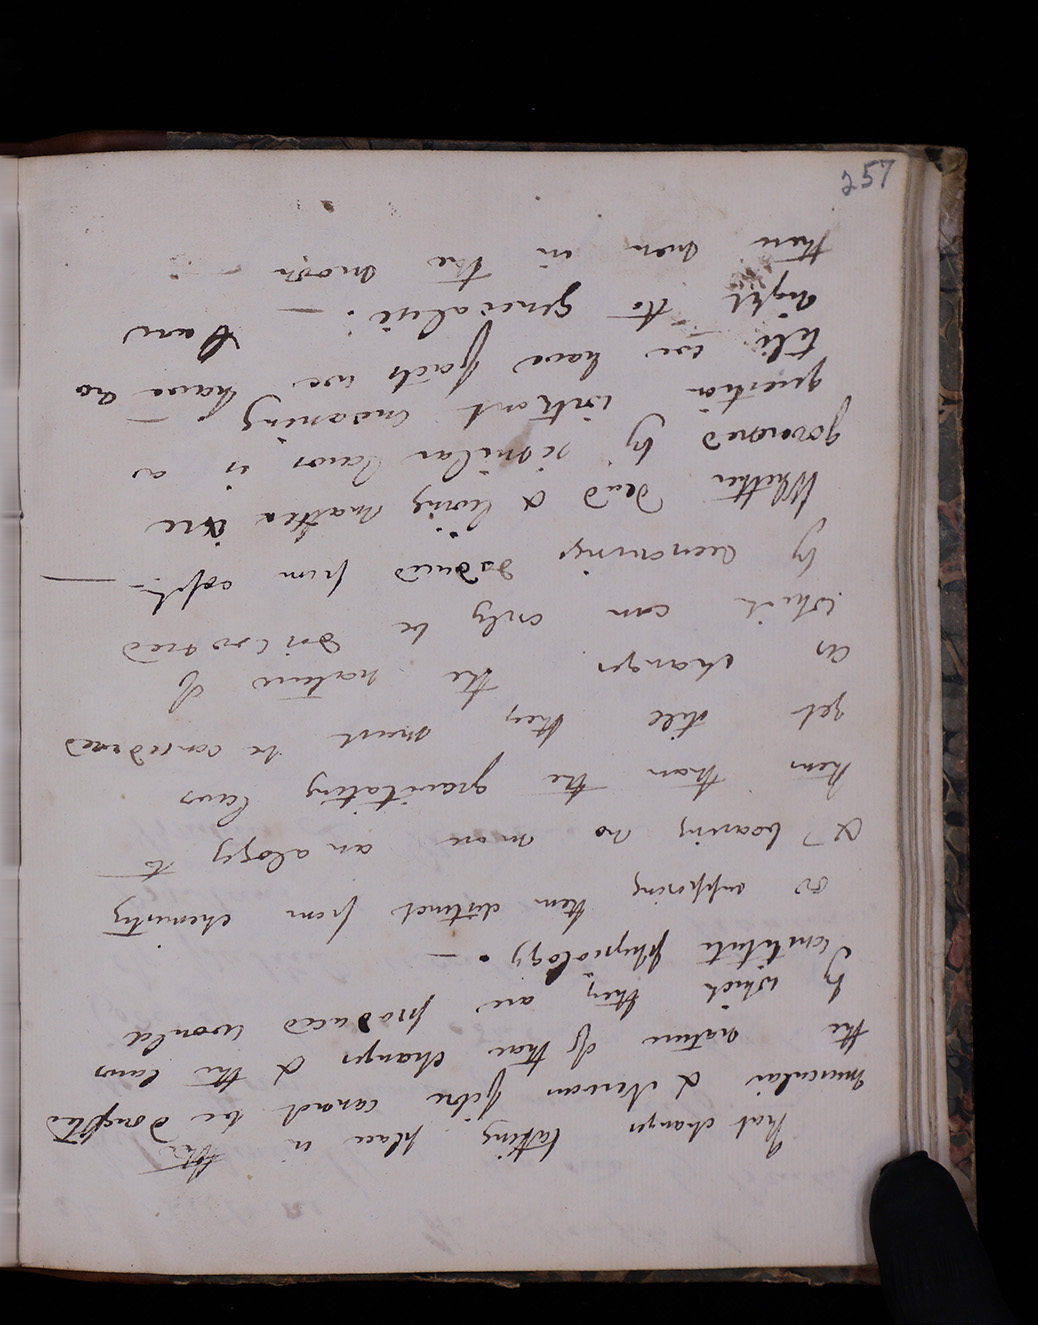 257
That changes taking place in the
muscular & Nervous fibre cannot be doubted
the nature of these changes & the laws
by which they are produced would
constitute physiology. —
or supposing them distinct from chemistry
& bearing no more analogy to
them than the gravitating laws
yet still they must be considered
as changes the nature of
which can only be discovered
by reasonings deduced from
Whether dead & living matter are
governed by similar laws is a
question without meaning
till we have facts we have no
right to generalise: — Laws
there men in the moon